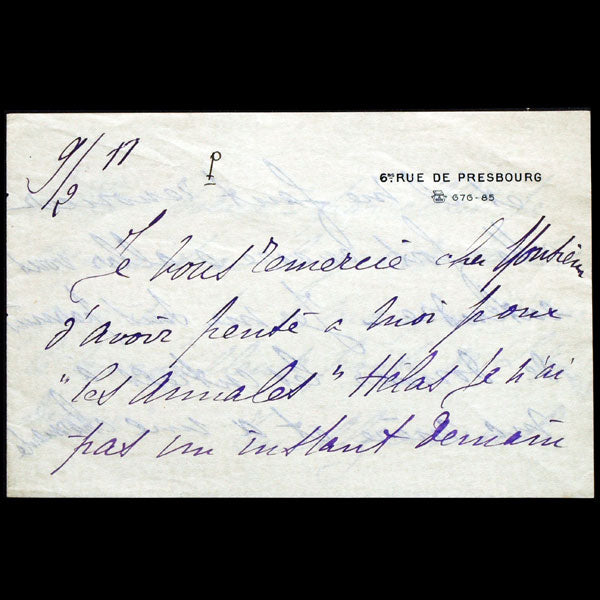 9/2 17
6, RUE DE PRESBOURG
676-85
Je vous remercie cher Monsieur
d'avoir pensé a moi pour
"les Annales" Hélas je n'ai
pas un instant demain